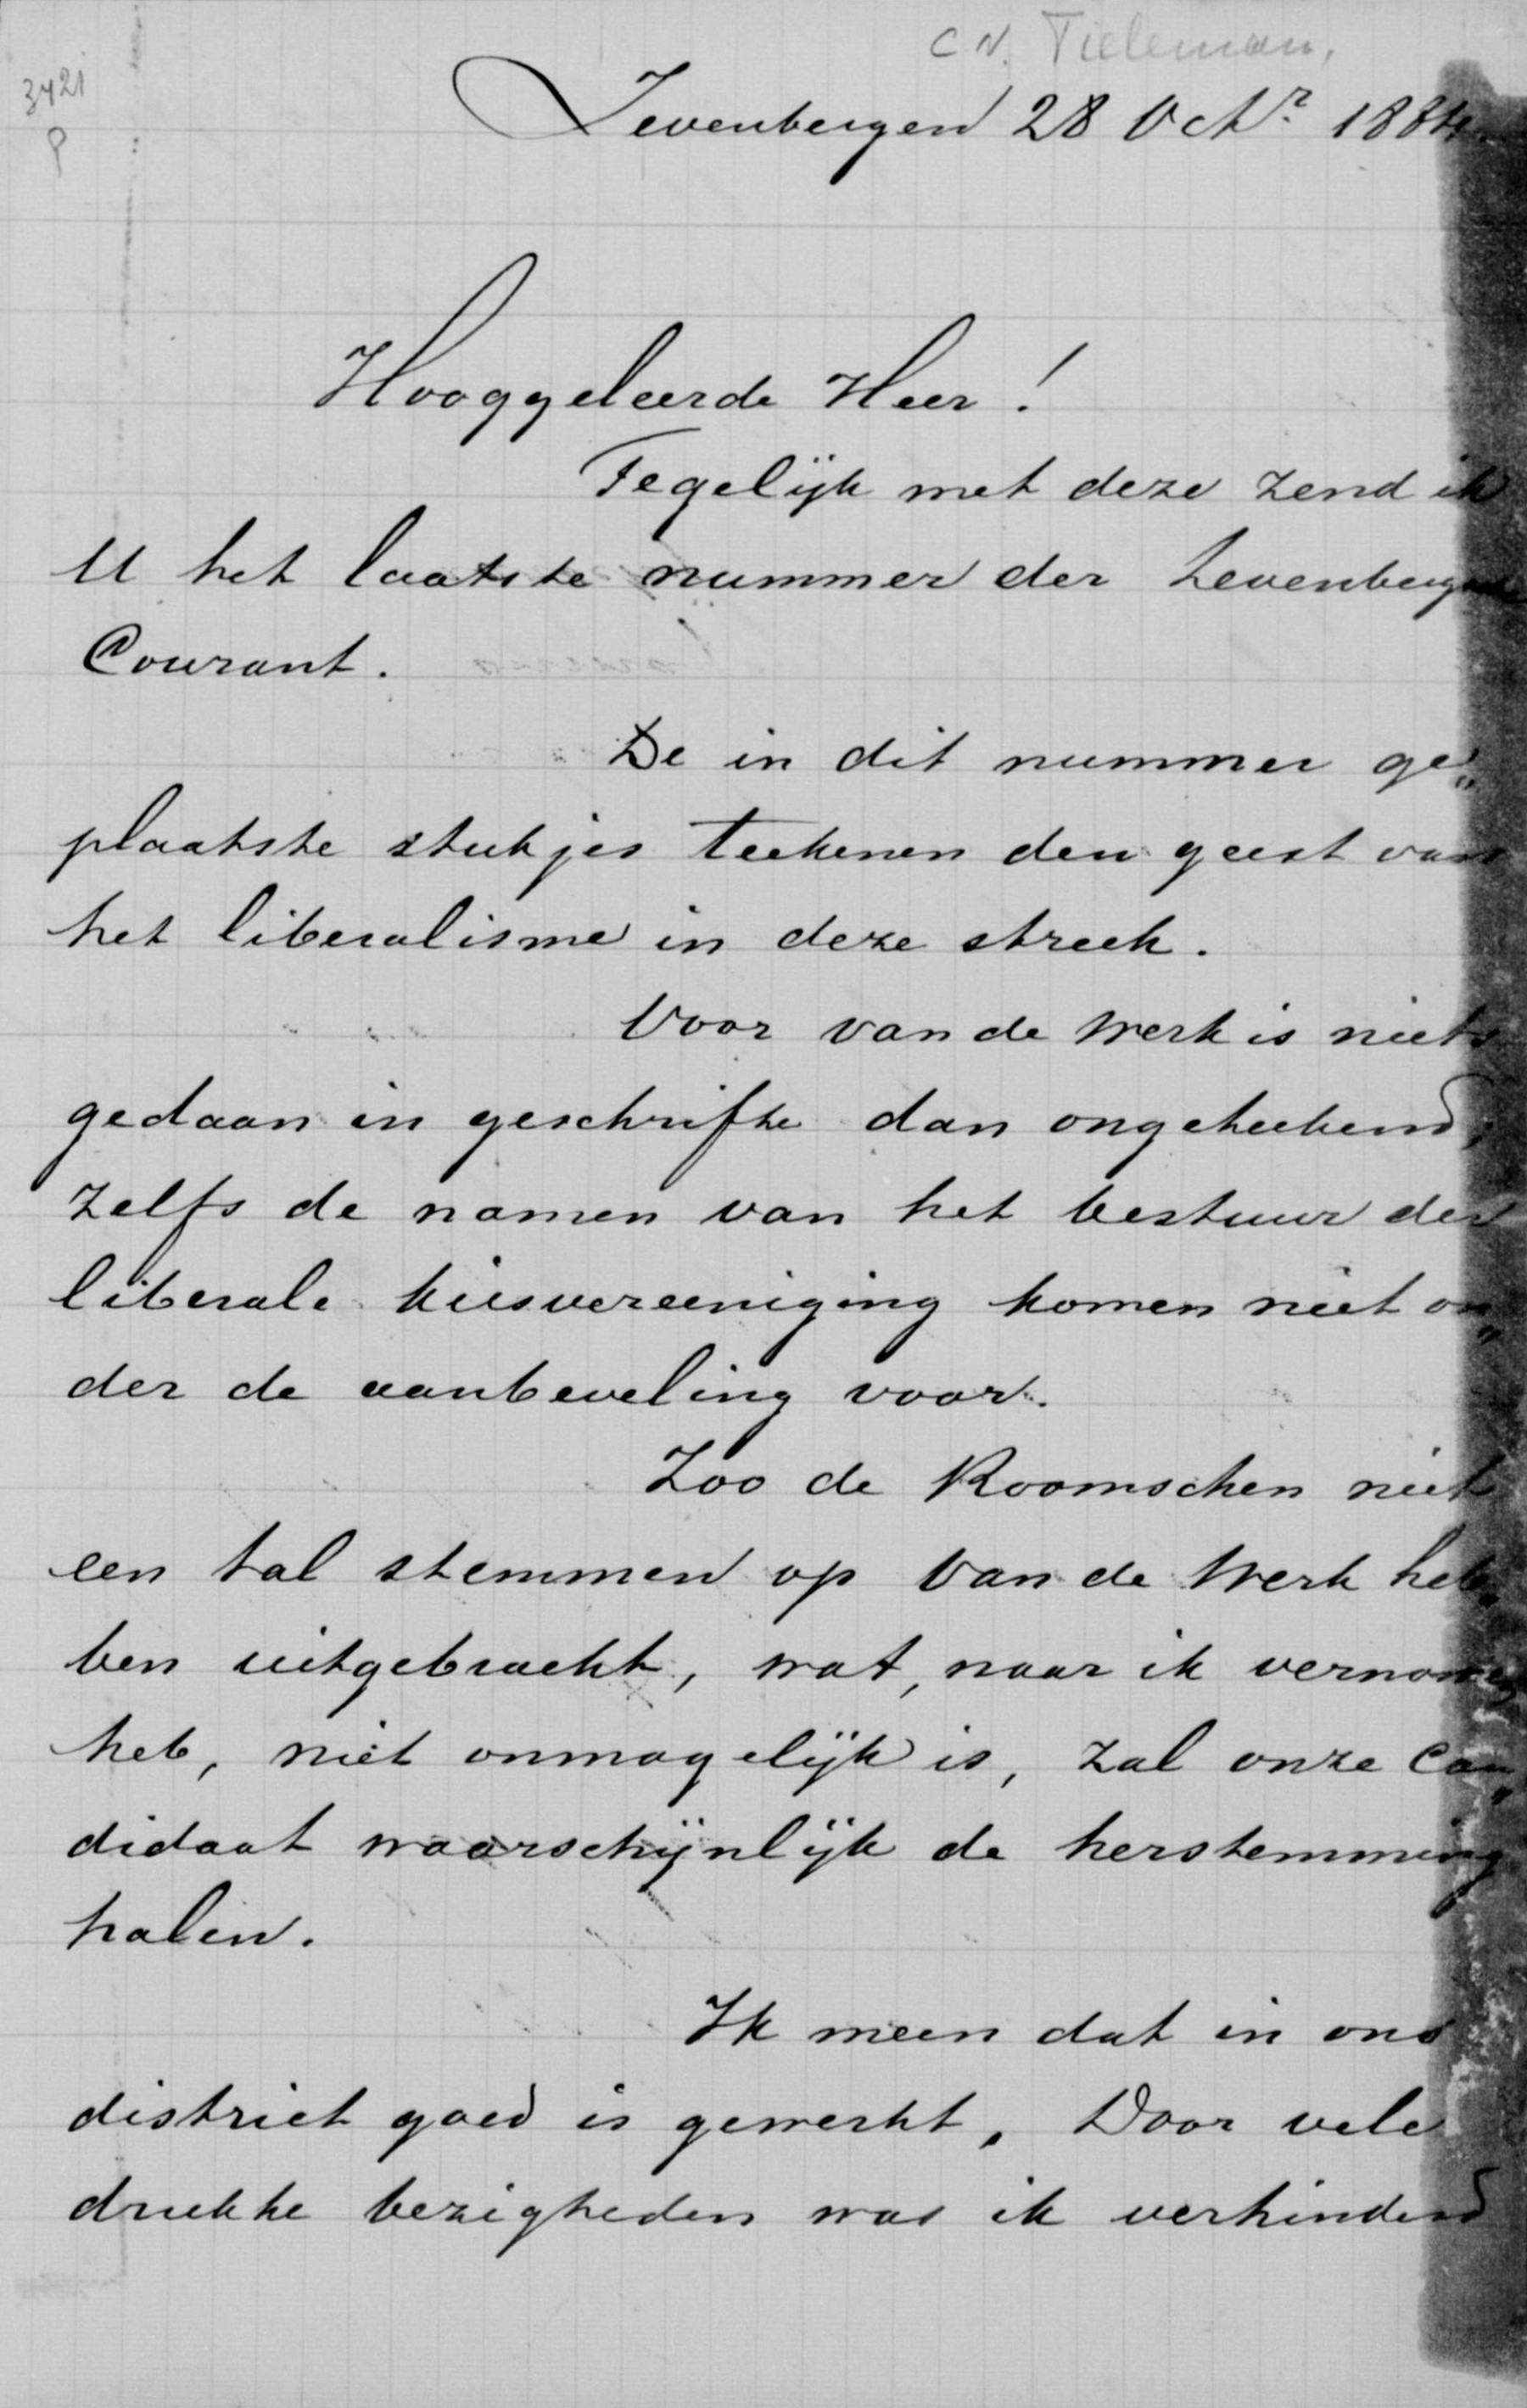 C N. Tieleman,
3421
P
Zevenbergen 28 Octr 1884
Hooggeleerde Heer!
Tegelijk met deze zend ik
U het laatste nummer der Zevenbergsche
Courant.
De in dit nummer ge„
plaatste stukjes teekenen den geest van
het liberalisme in deze streek.
Voor van de Werk is niets
gedaan in geschrifte dan ongeteekend;
zelfs de namen van het bestuur der
liberale kiesvereeniging komen niet on„
der de aanbeveling voor.
Zoo de Roomschen niet
een tal stemmen op van de Werk heb„
ben uitgebracht, wat, naar ik vernomen
heb, niet onmogelijk is, zal onze Can„
didaat waarschijnlijk de herstemming
halen.
Ik meen dat in ons
district goed is gewerkt. Door vele
drukke bezigheden was ik verhinderd